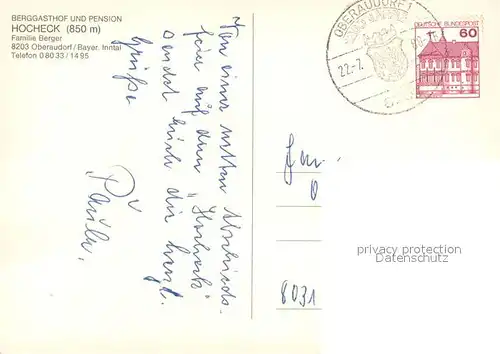 BERGGASTHOF UND PENSION
HOCHECK (850 m)
Familie Berger
8203 Oberaudorf / Bayer. Inntal
Telefon 0 80 33 / 14 95
Von einer netten Abschieds-
feier auf dem "Hocheck"
sendet euch die herzl.
Grüße
Paula.
OBERAUDORF 1
22.-7.
DEUTSCHE BUNDESPOST
60
8031
privacy protection
Datenschutz